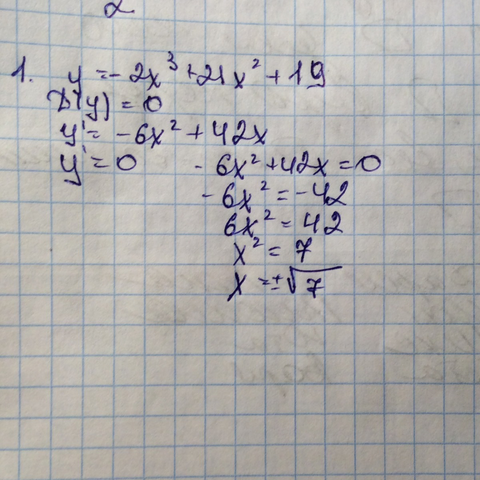 1. y = -2x³ + 21x² + 19
D(y) = 0
y' = -6x² + 42x
y' = 0 -6x² + 42x = 0
-6x² = -42
6x² = 42
x² = 7
x = ±√7